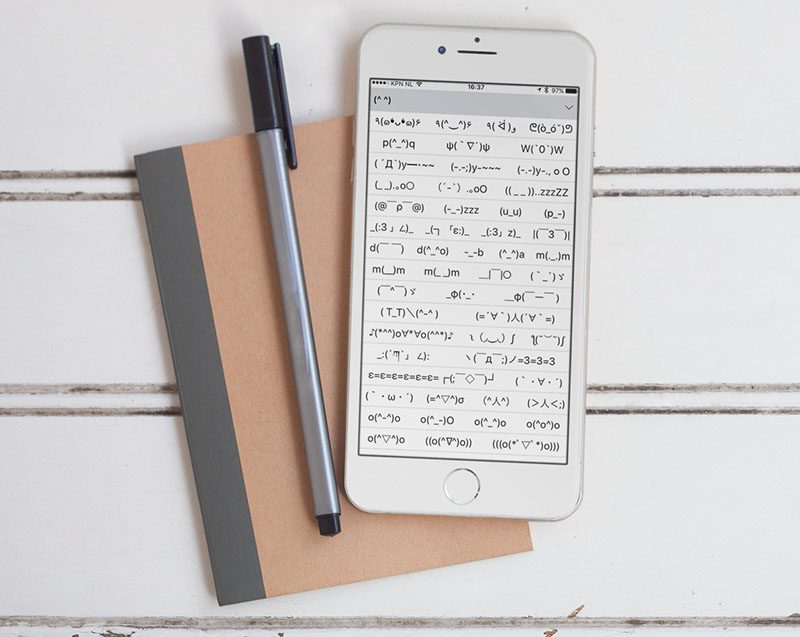 ●●●●○ KPN NL 16:37 97%
(^ ^)
٩(๑❛ᴗ❛๑)۶ ٩(^‿^)۶ ٩( ᐛ )و ᕦ(ò_óˇ)ᕤ
p(^_^)q ψ(｀∇´)ψ W(`0`)W
( ´Д`)y━･~~ (-.-;)y-~~~ (-.-)y-., o O
(_ _).｡oO (´-`).｡oO (( _ _ ))..zzzZZ
(@￣ρ￣@) (-_-)zzz (u_u) (p_-)
_(:3 」∠)_ _(┐「ε:)_ _(:3」z)_ |(￣3￣)|
d(￣ ￣) d(^_^o) -_-b (^_^)a m(._.)m
m(__)m m(_ _)m __|￣|○ (｀_´)ゞ
(￣^￣)ゞ _φ(･_･ __φ(￣ー￣ )
( T_T)＼(^-^ ) (=´∀｀)人(´∀｀=)
♪(*^^)o∀*∀o(^^*)♪ ʅ(￣˘￣)ʃ
_:(´ཀ`」 ∠): ヽ(￣д￣;)ノ=3=3=3
ε=ε=ε=ε=ε=ε=┌(;￣◇￣)┘ (｀･∀･´)
(｀･ω･´) (=^▽^)σ (^人^) (＞人＜;)
o(^-^)o o(^_-)O o(^_^)o o(^o^)o
o(^▽^)o ((o(^∇^)o)) (((o(*ﾟ▽ﾟ*)o)))